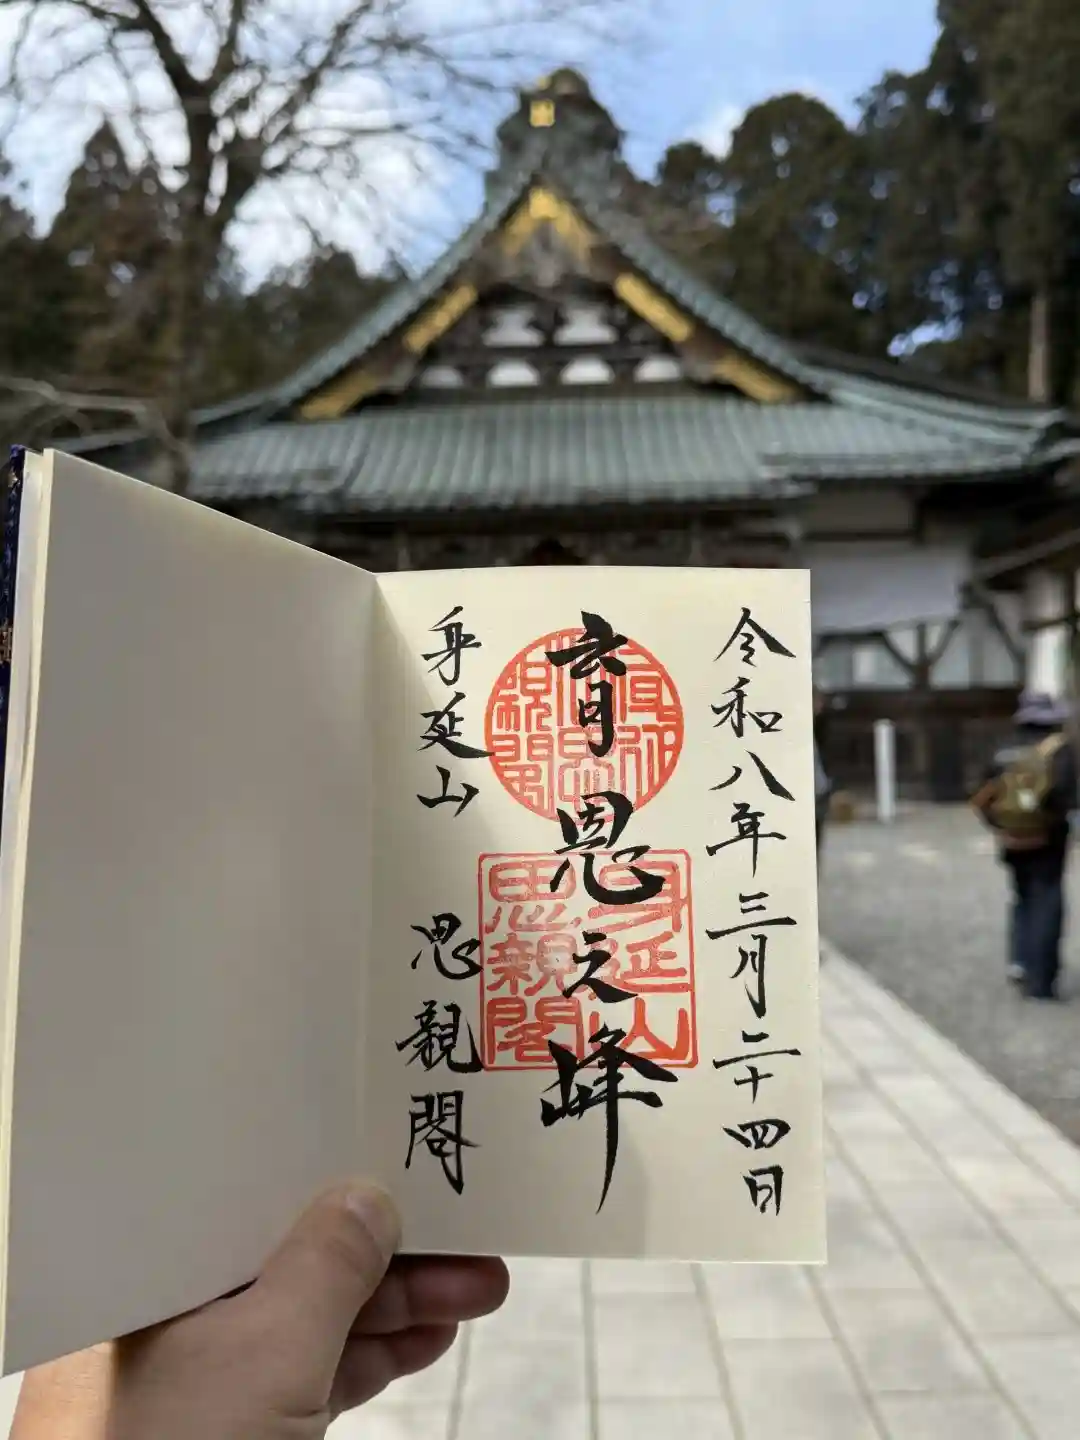 令和八年三月二十四日
育恩之峰
身延山
思親閣
身延山 思親閣